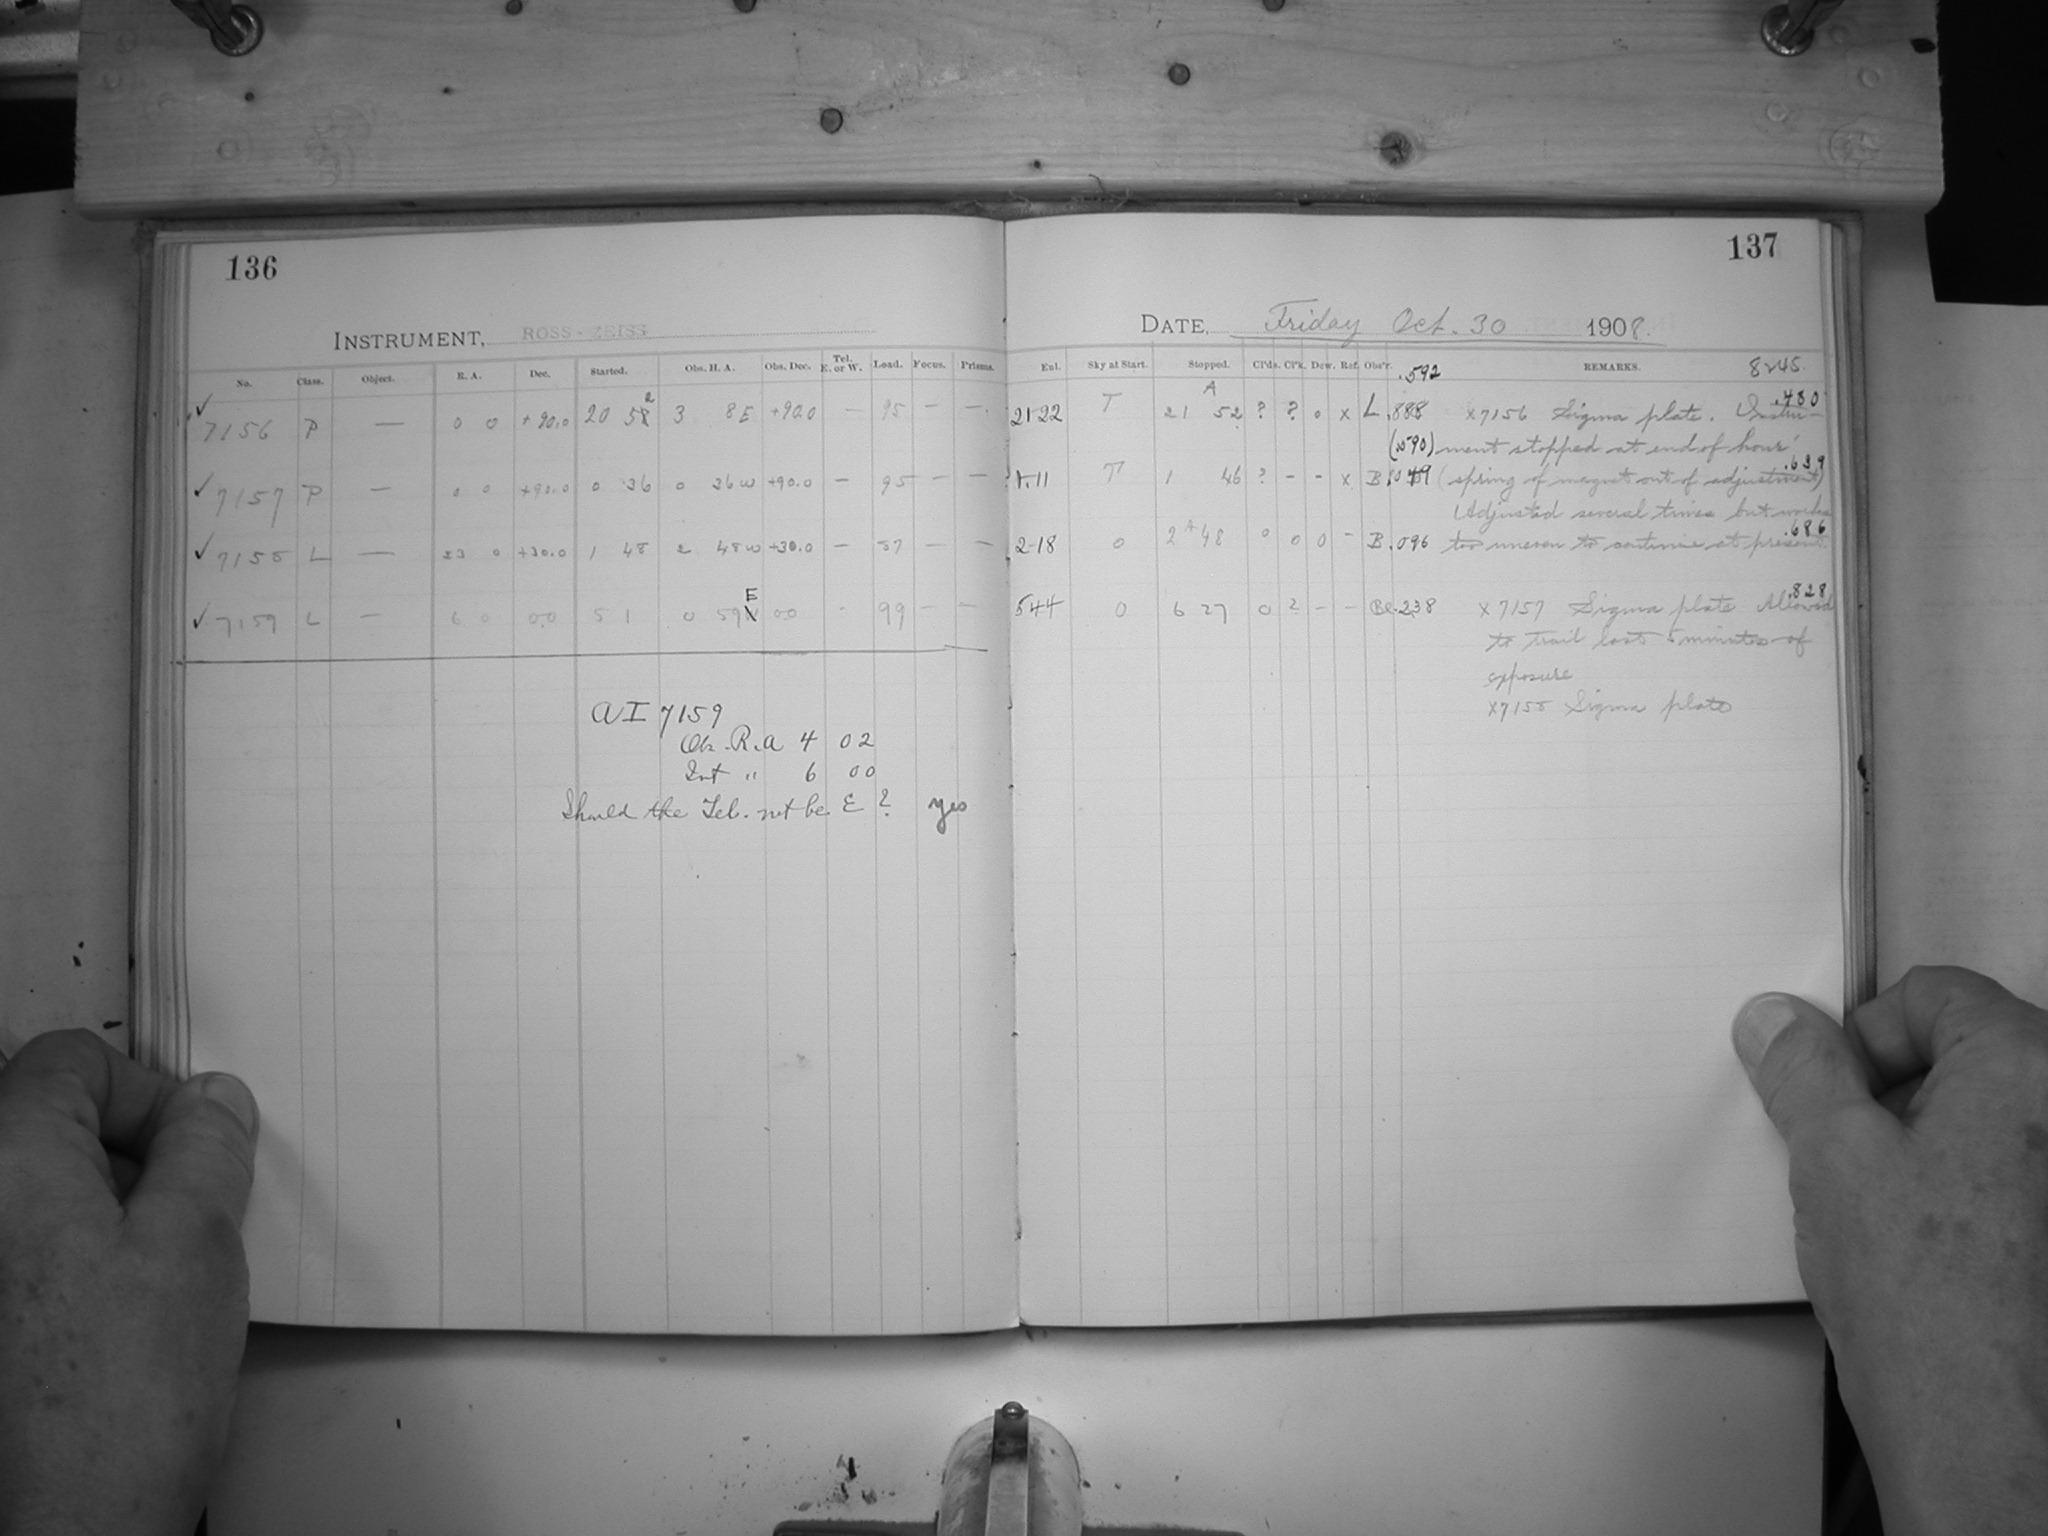 136
INSTRUMENT, ROSS-ZEISS
No. Class. Object. R. A. Dec. Started. Obs. H. A. Obs. Dec. Tel. E. or W. Load. Focus. Prisms.
✓ 7156 P — 0 0 +90.0 20 58 2 3 8 E +90.0 — 95 — —
✓ 7157 P — 0 0 +90.0 0 36 0 36 W +90.0 — 95 — —
✓ 7158 L — 23 0 +30.0 1 48 2 48 W +30.0 — 57 — —
✓ 7159 L — 6 0 0.0 5 1 0 59 E 0.0 - 99 — —
AI 7159
Obs. R.A 4 02
Int " 6 00
Should the Tel. not be E? yes
137
DATE, Friday Oct. 30 1908.
Exl. Sky at Start. Stopped. Cl'ds. Cl'k. Dew. Ref. Obs'r. .592 REMARKS. 8245.
21-22 T 21 A 52 ? ? 0 x L .888 x7156 Sigma plate. Instru- .480
(.590) ment stopped at end of hour
1.11 T 1 46 ? - - x B (spring of magnet out of adjustment) .639
Adjusted several times but works
2-18 0 2 A 48 0 0 0 - B .096 too uneven to continue at present. .686
544 0 6 27 0 2 - - Be .238 x7157 Sigma plate Allowed .828
to trail last 5 minutes of
exposure
x7158 Sigma plate